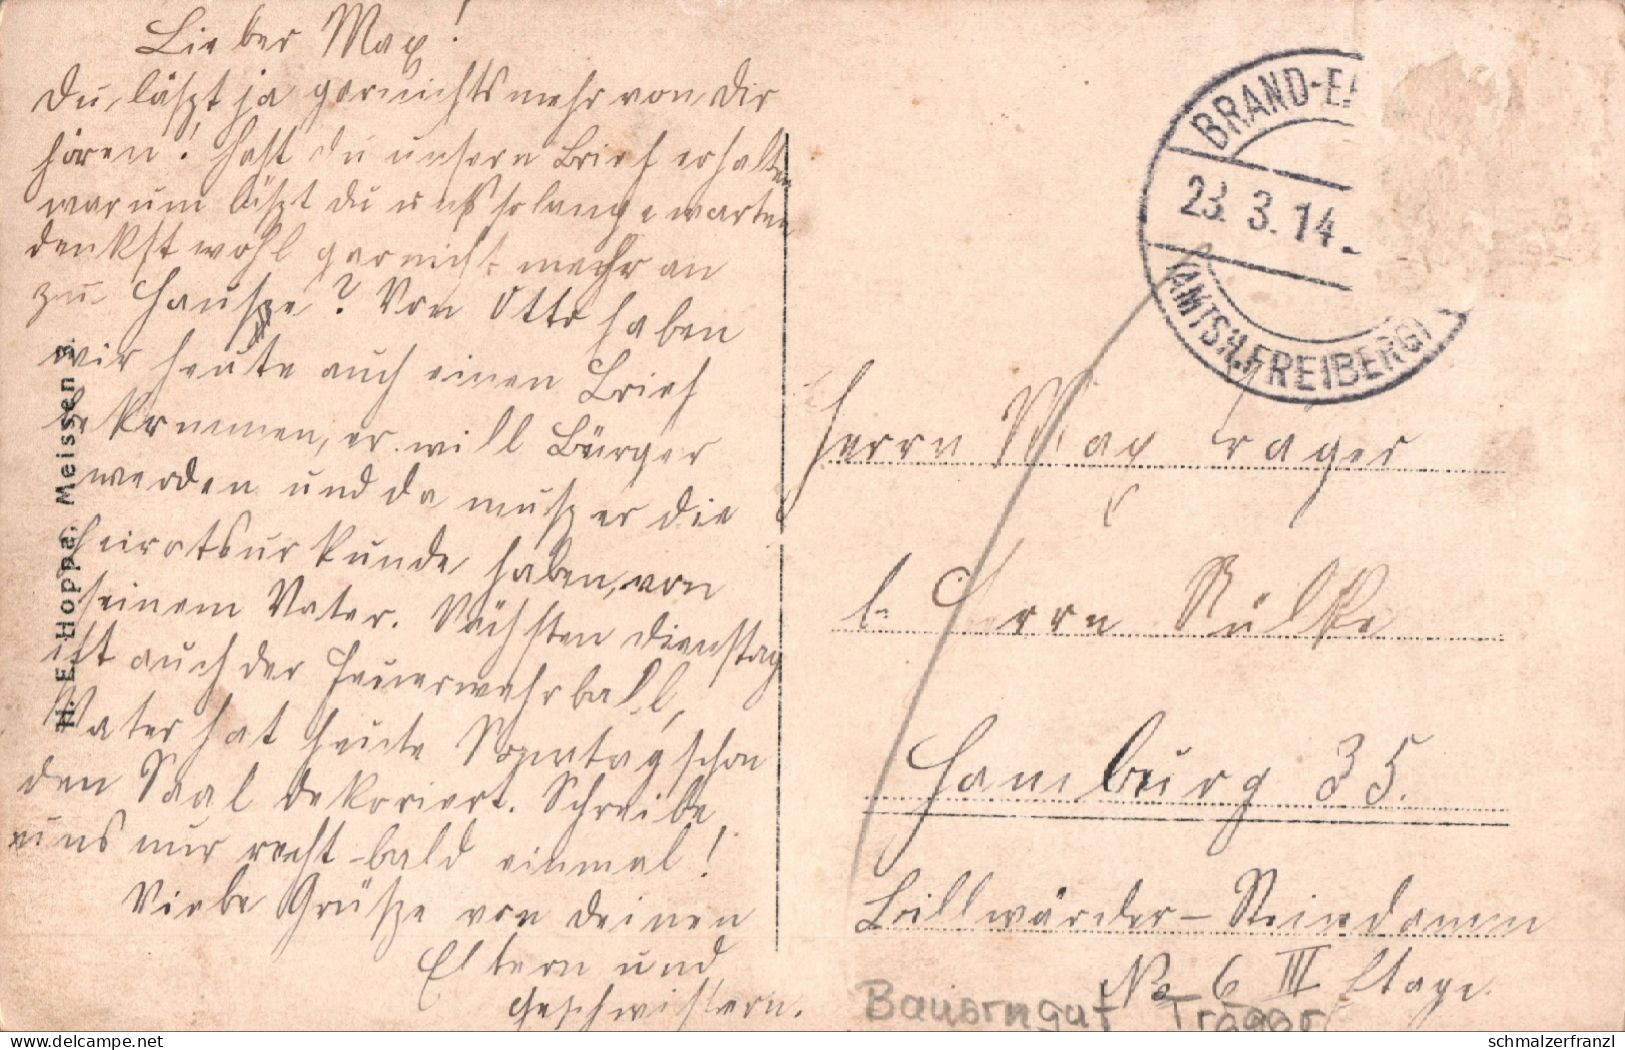 Lieber Max!
Du läszt ja garnichts mehr von Dir
hören! Hast du unsern Brief erhalten
warum läszt du uns so lange warten
denkst wohl garnicht mehr an
zu Hausze? Von Otto haben
wir heute auch einen Brief
bekommen, er will Bürger
werden und da musz er die
Heiratsurkunde haben, von
seinem Vater. Nächsten Dienstag
ist auch der Feuerwehrball,
Vater hat heute Sonntag schon
den Saal dekoriert. Schreibe
uns nur recht bald einmal!
Viele Grüsze von deinen
Eltern und
Geschwistern.
H. E. Hoppa, Meissen 3.
BRAND-E
23. 3. 14.
(AMTSH. FREIBERG)
Herrn Max Trager
b. Herrn Stülke
Hamburg 35.
Billwärder-Steindamm
No 6 III Etage.
Bauerngut Träger
www.schmalzerfranzl.com
schmalzerfranzl